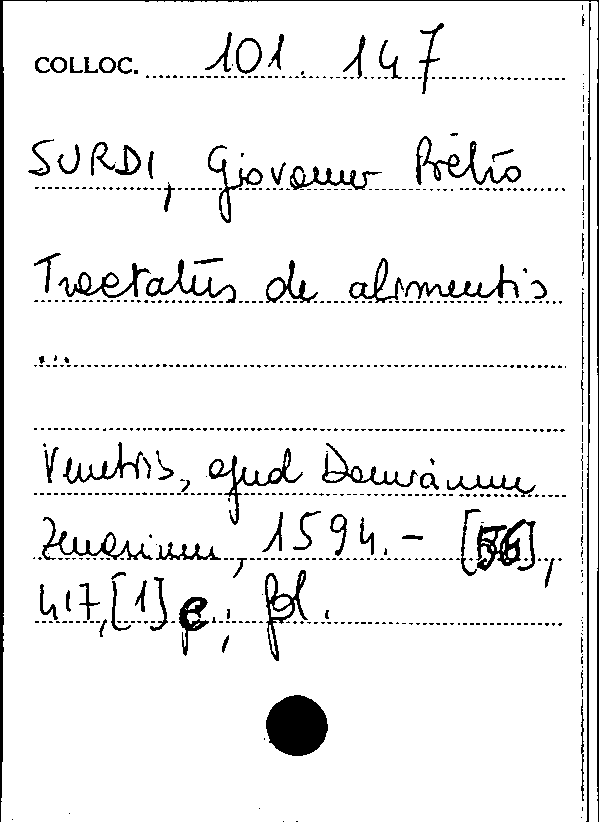 COLLOC. 101. 147
SURDI, Giovanni Pietro
Tractatus de alimentis
...
Venetiis, apud Damianum
Zenarium, 1594. - [56],
417, [1] c.; fol.